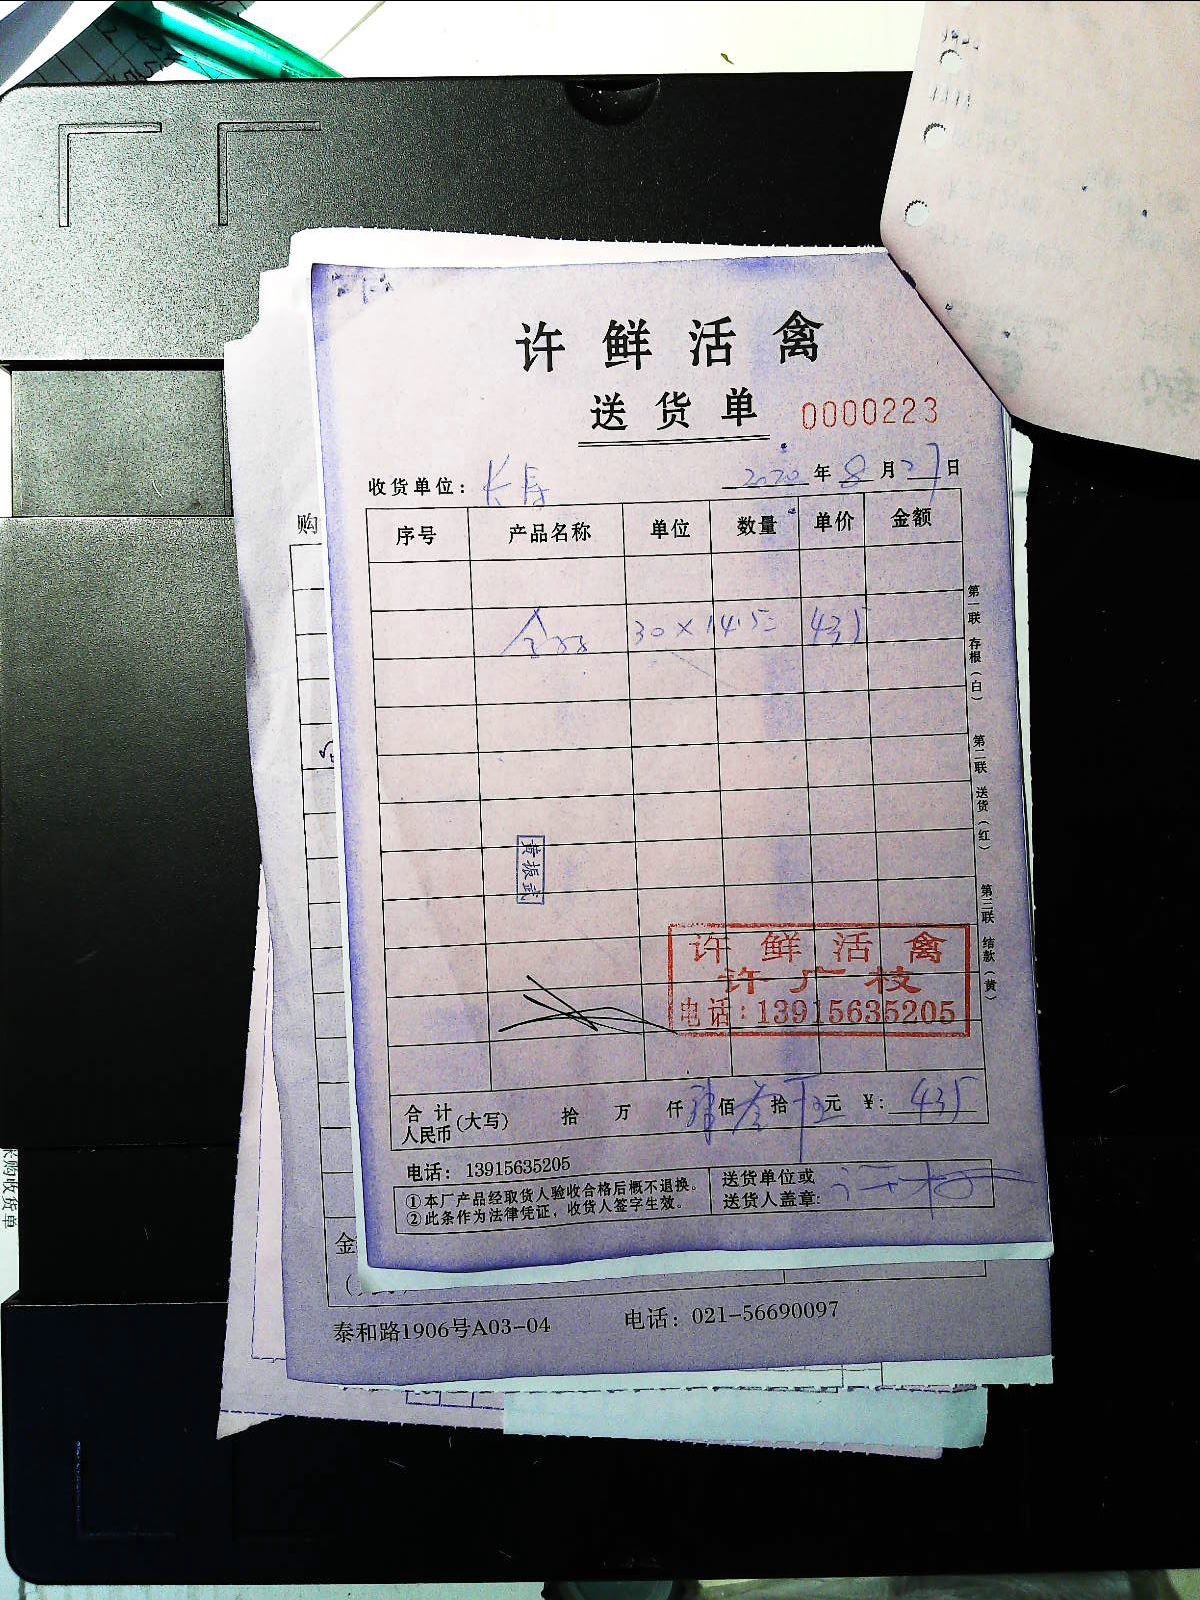 许鲜活禽
送货单 0000223
收货单位： 2020年8月27日
购
序号 产品名称 单位 数量 单价 金额
30×14.5= 435
第一联 存根（白）
第二联 送货（红）
第三联 结款（黄）
黄振武
许鲜活禽
许广枝
电话：13915635205
合计人民币(大写) 拾 万 仟 肆佰叁拾伍元 ¥: 435
电话：13915635205
①本厂产品经取货人验收合格后概不退换。
②此条作为法律凭证，收货人签字生效。
送货单位或
送货人盖章:
金
泰和路1906号A03-04 电话：021-56690097
购收货单